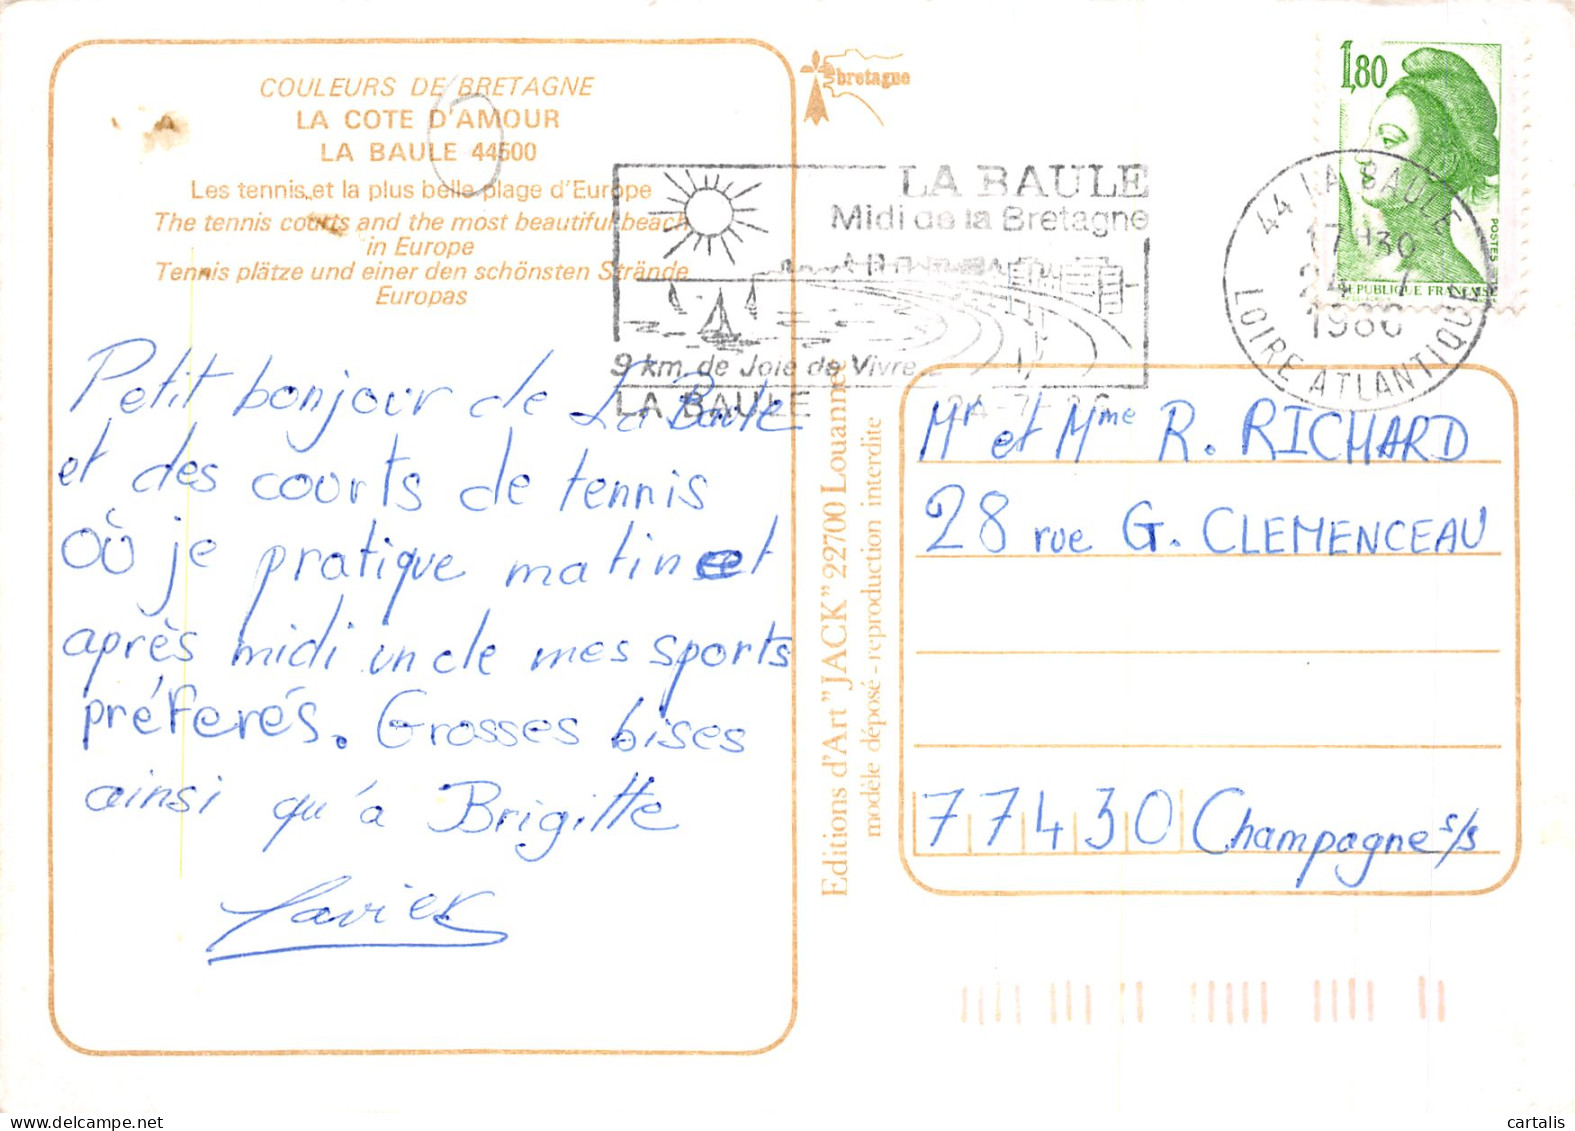 COULEURS DE BRETAGNE
LA COTE D'AMOUR
LA BAULE 44500
Les tennis et la plus belle plage d'Europe
The tennis courts and the most beautiful beach
in Europe
Tennis plätze und einer den schönsten Strände
Europas
Petit bonjour de La Baule
et des courts de tennis
où je pratique matin et
après midi un de mes sports
préferés. Grosses bises
ainsi qu'à Brigitte
Xavier
bretagne
LA BAULE
Midi de la Bretagne
9 km de Joie de Vivre
LA BAULE
24-7-86
44 LA BAULE
17H30
24 -7
1986
LOIRE ATLANTIQUE
1,80
POSTES
REPUBLIQUE FRANÇAISE
Editions d'Art "JACK" 22700 Louannec
modèle déposé - reproduction interdite
Mr et Mme R. RICHARD
28 rue G. CLEMENCEAU
77430 Champagne s/s
cartalis